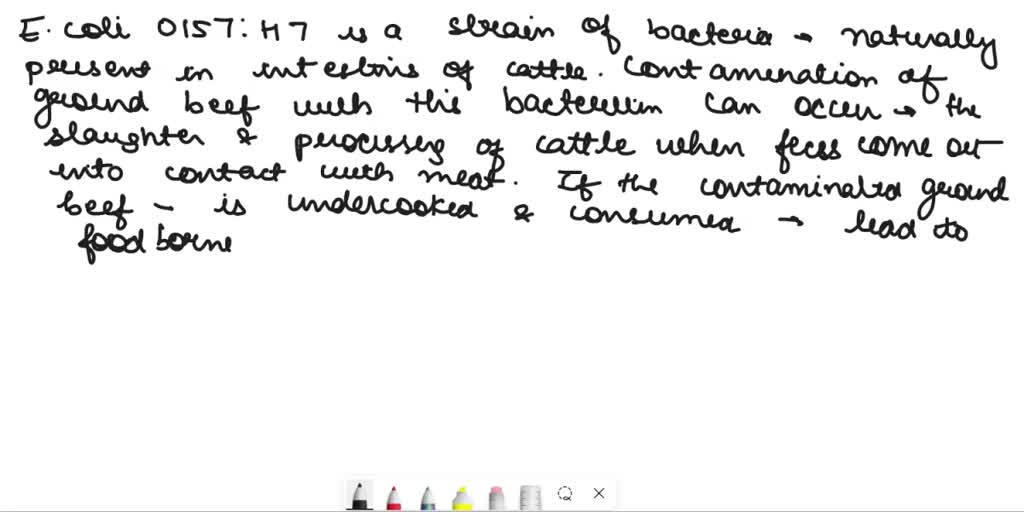 E. coli O157:H7 is a strain of bacteria → naturally
present in intestins of cattle. Contamination of
ground beef with this bacterium can occur → the
slaughter & processing of cattle when feces come out
into contact with meat. If the contaminated ground
beef - is undercooked & consumed → lead to
food borne